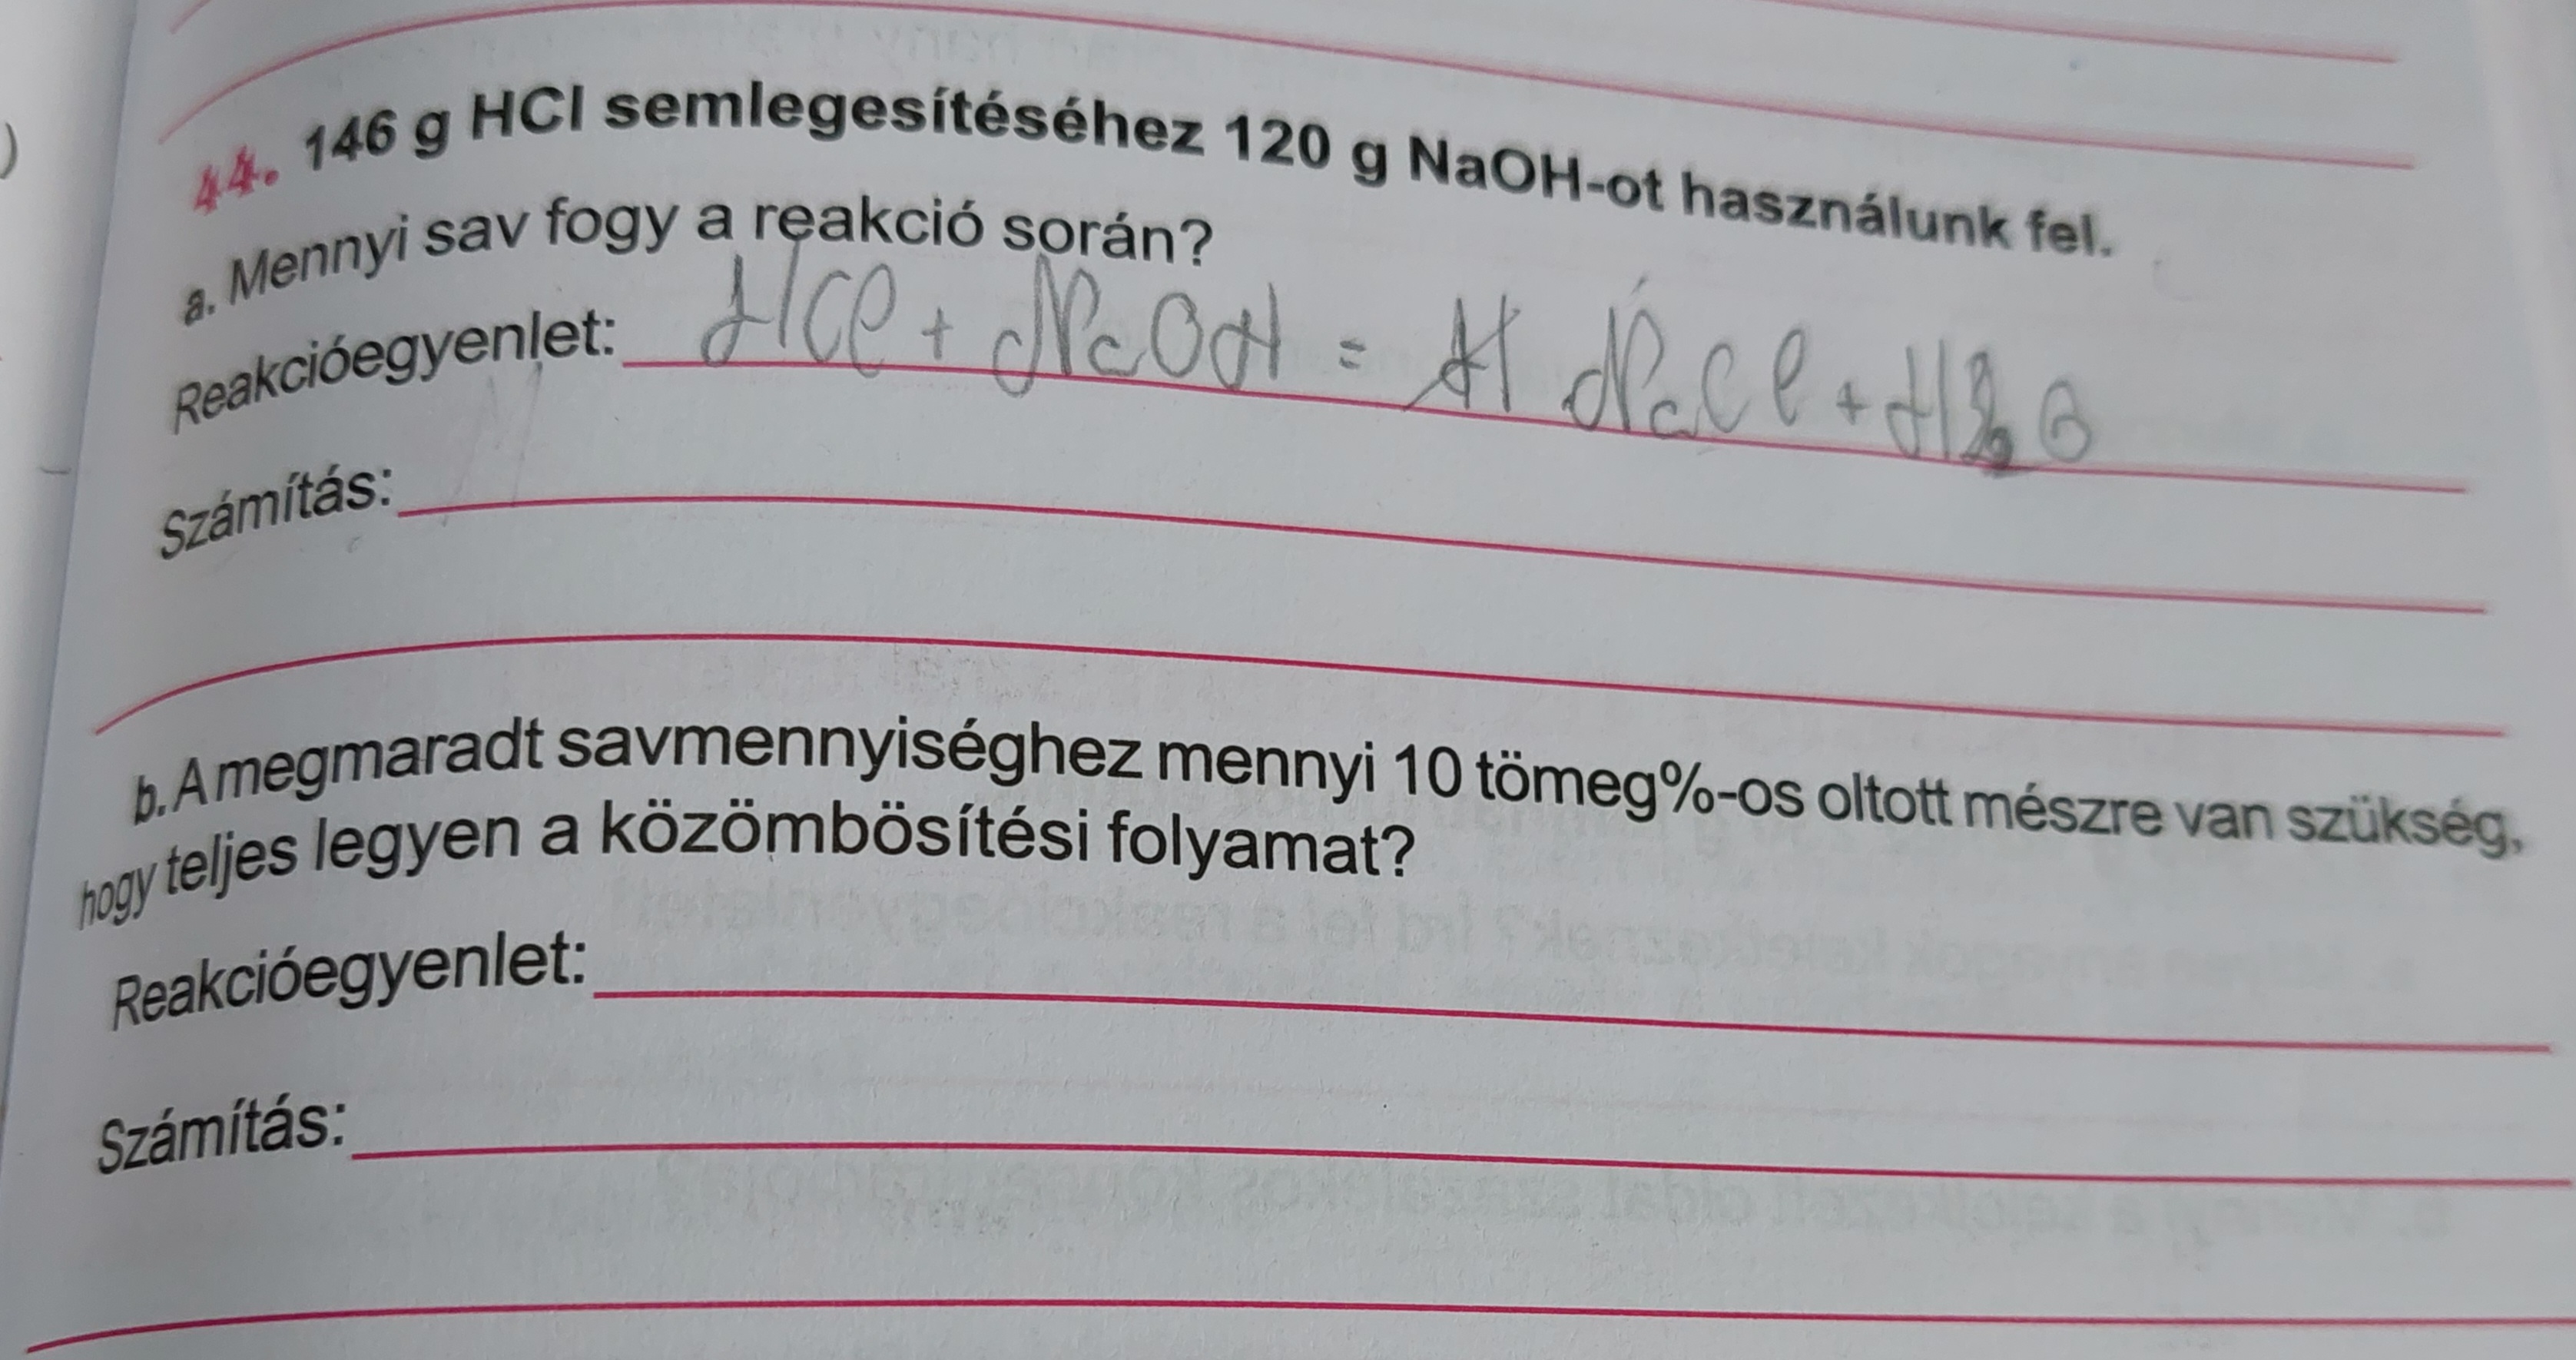 44. 146 g HCl semlegesítéséhez 120 g NaOH-ot használunk fel.
a. Mennyi sav fogy a reakció során?
Reakcióegyenlet: HCl + NaOH = NaCl + H2O
Számítás:
b. A megmaradt savmennyiséghez mennyi 10 tömeg%-os oltott mészre van szükség,
hogy teljes legyen a közömbösítési folyamat?
Reakcióegyenlet:
Számítás: